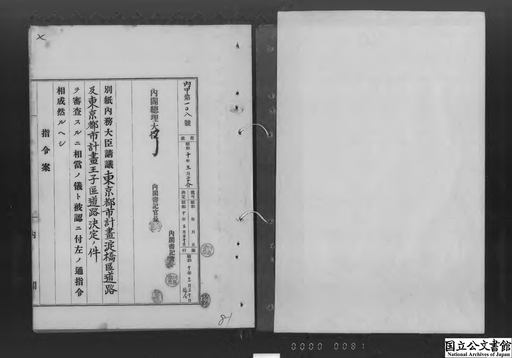 内甲第一〇八號
内閣總理大
内閣書記官長
内閣書記官
別紙内務大臣請議東京都市計畫淀橋區道路
及東京都市計畫王子區道路決定ノ件
ヲ審査スルニ相當ノ儀ト被認ニ付左ノ通指令
相成然ルヘシ
指令案
内閣
81
0000 0081
国立公文書館
National Archives of Japan